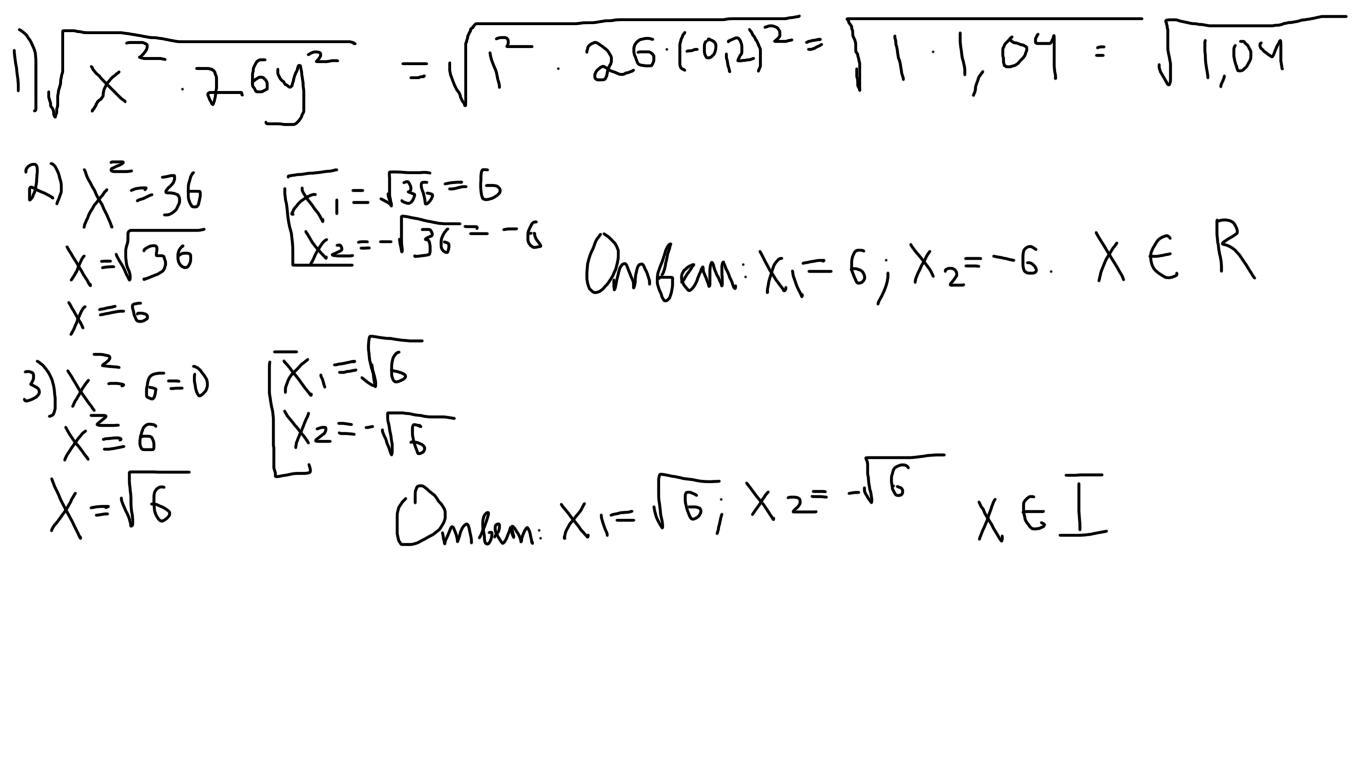 1) √(x² · 26y²) = √(1² · 26 · (-0,2)²) = √(1 · 1,04) = √1,04
2) x² = 36
x = √36
x = 6
x₁ = √36 = 6
x₂ = -√36 = -6
Ответ: x₁ = 6; x₂ = -6. X ∈ R
3) x² - 6 = 0
x² = 6
x = √6
x₁ = √6
x₂ = -√6
Ответ: x₁ = √6; x₂ = -√6 X ∈ I